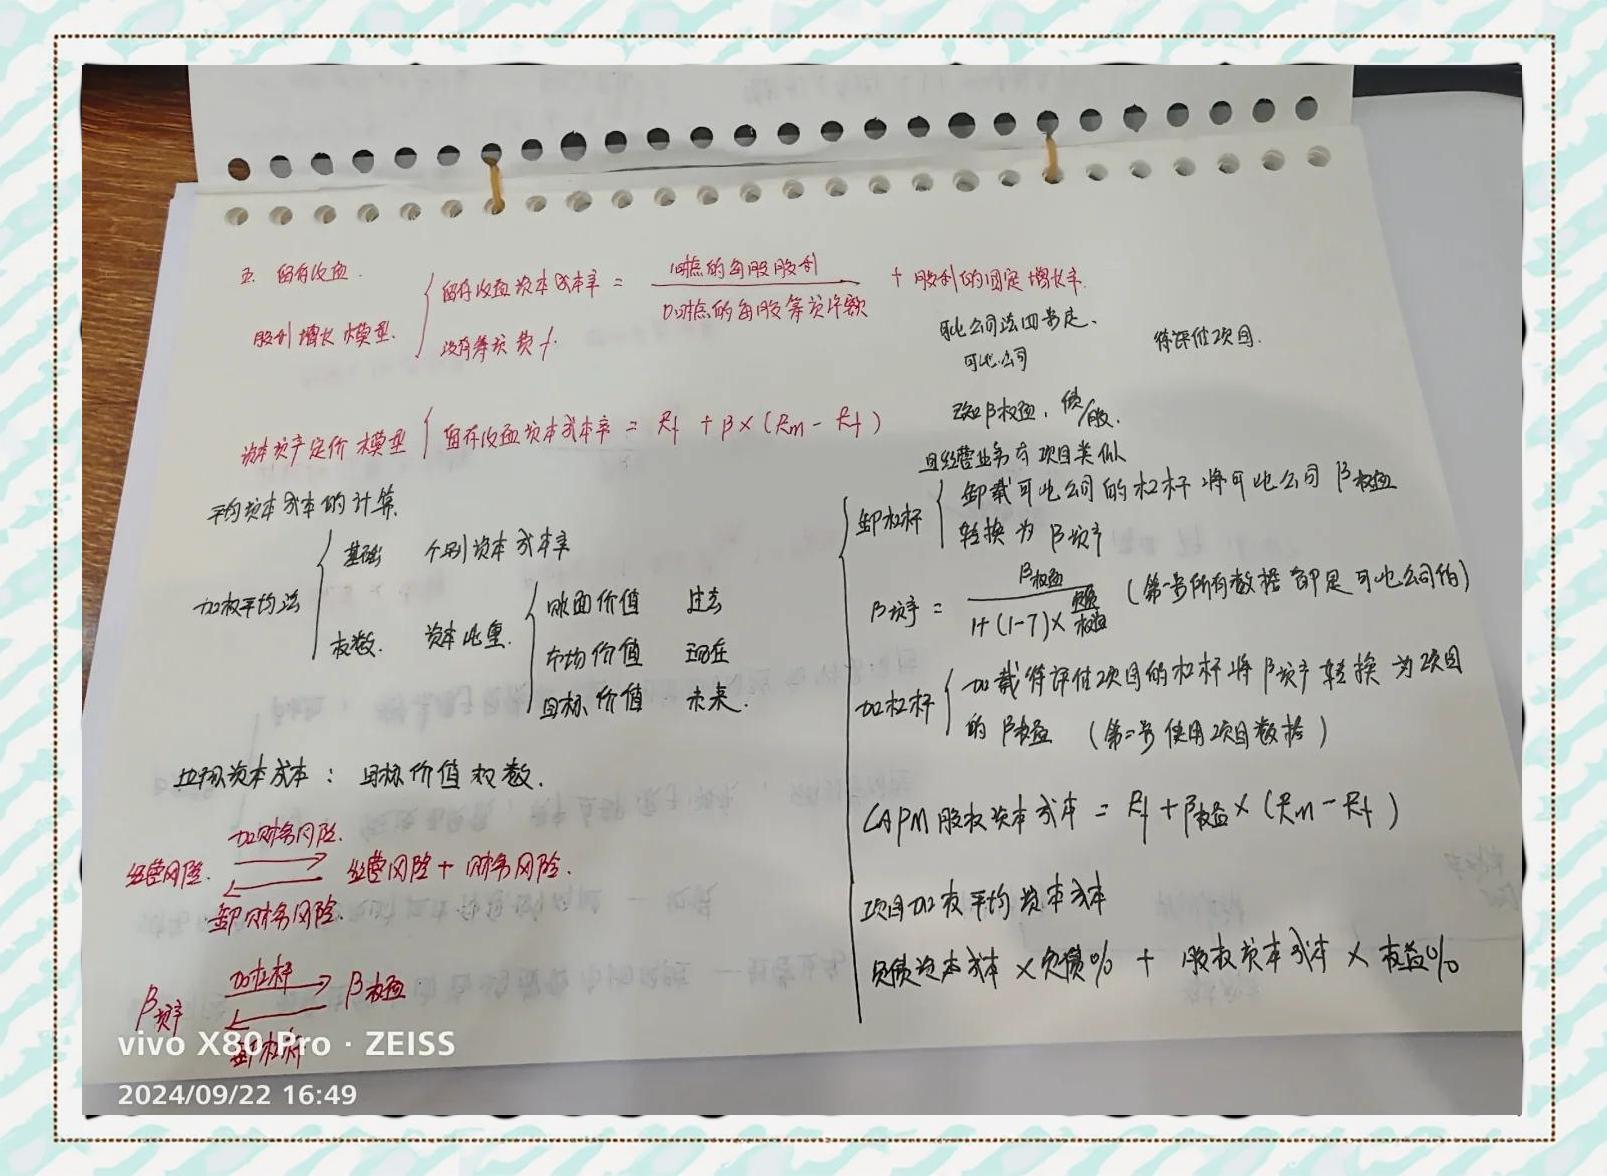 五. 留存收益.
股利增长模型.
留存收益资本成本率 = 1时点的每股股利 / 0时点的每股筹资净额 + 股利的固定增长率.
没有筹资费f.
资本资产定价模型
留存收益资本成本率 = Rf + β×(Rm - Rf)
平均资本成本的计算.
加权平均法
基础 个别资本成本率
权数. 资本比重.
账面价值 过去
市场价值 现在
目标价值 未来.
边际资本成本: 目标价值权数.
加财务风险.
经营风险. 经营风险 + 财务风险.
卸财务风险.
加杠杆
β资产 β权益
卸杠杆
可比公司法四步走.
可比公司 待评估项目.
已知β权益, 债/股.
且经营业务与项目类似
卸杠杆
卸载可比公司的杠杆将可比公司β权益
转换为β资产
β资产 = β权益 / 1+(1-T)×负债/权益 (第一步所有数据都是可比公司的)
加杠杆
加载待评估项目的杠杆将β资产转换为项目
的β权益 (第二步使用项目数据)
CAPM 股权资本成本 = Rf + β权益×(Rm - Rf)
项目加权平均资本成本
负债资本成本×负债% + 股权资本成本×权益%
vivo X80 Pro · ZEISS
2024/09/22 16:49